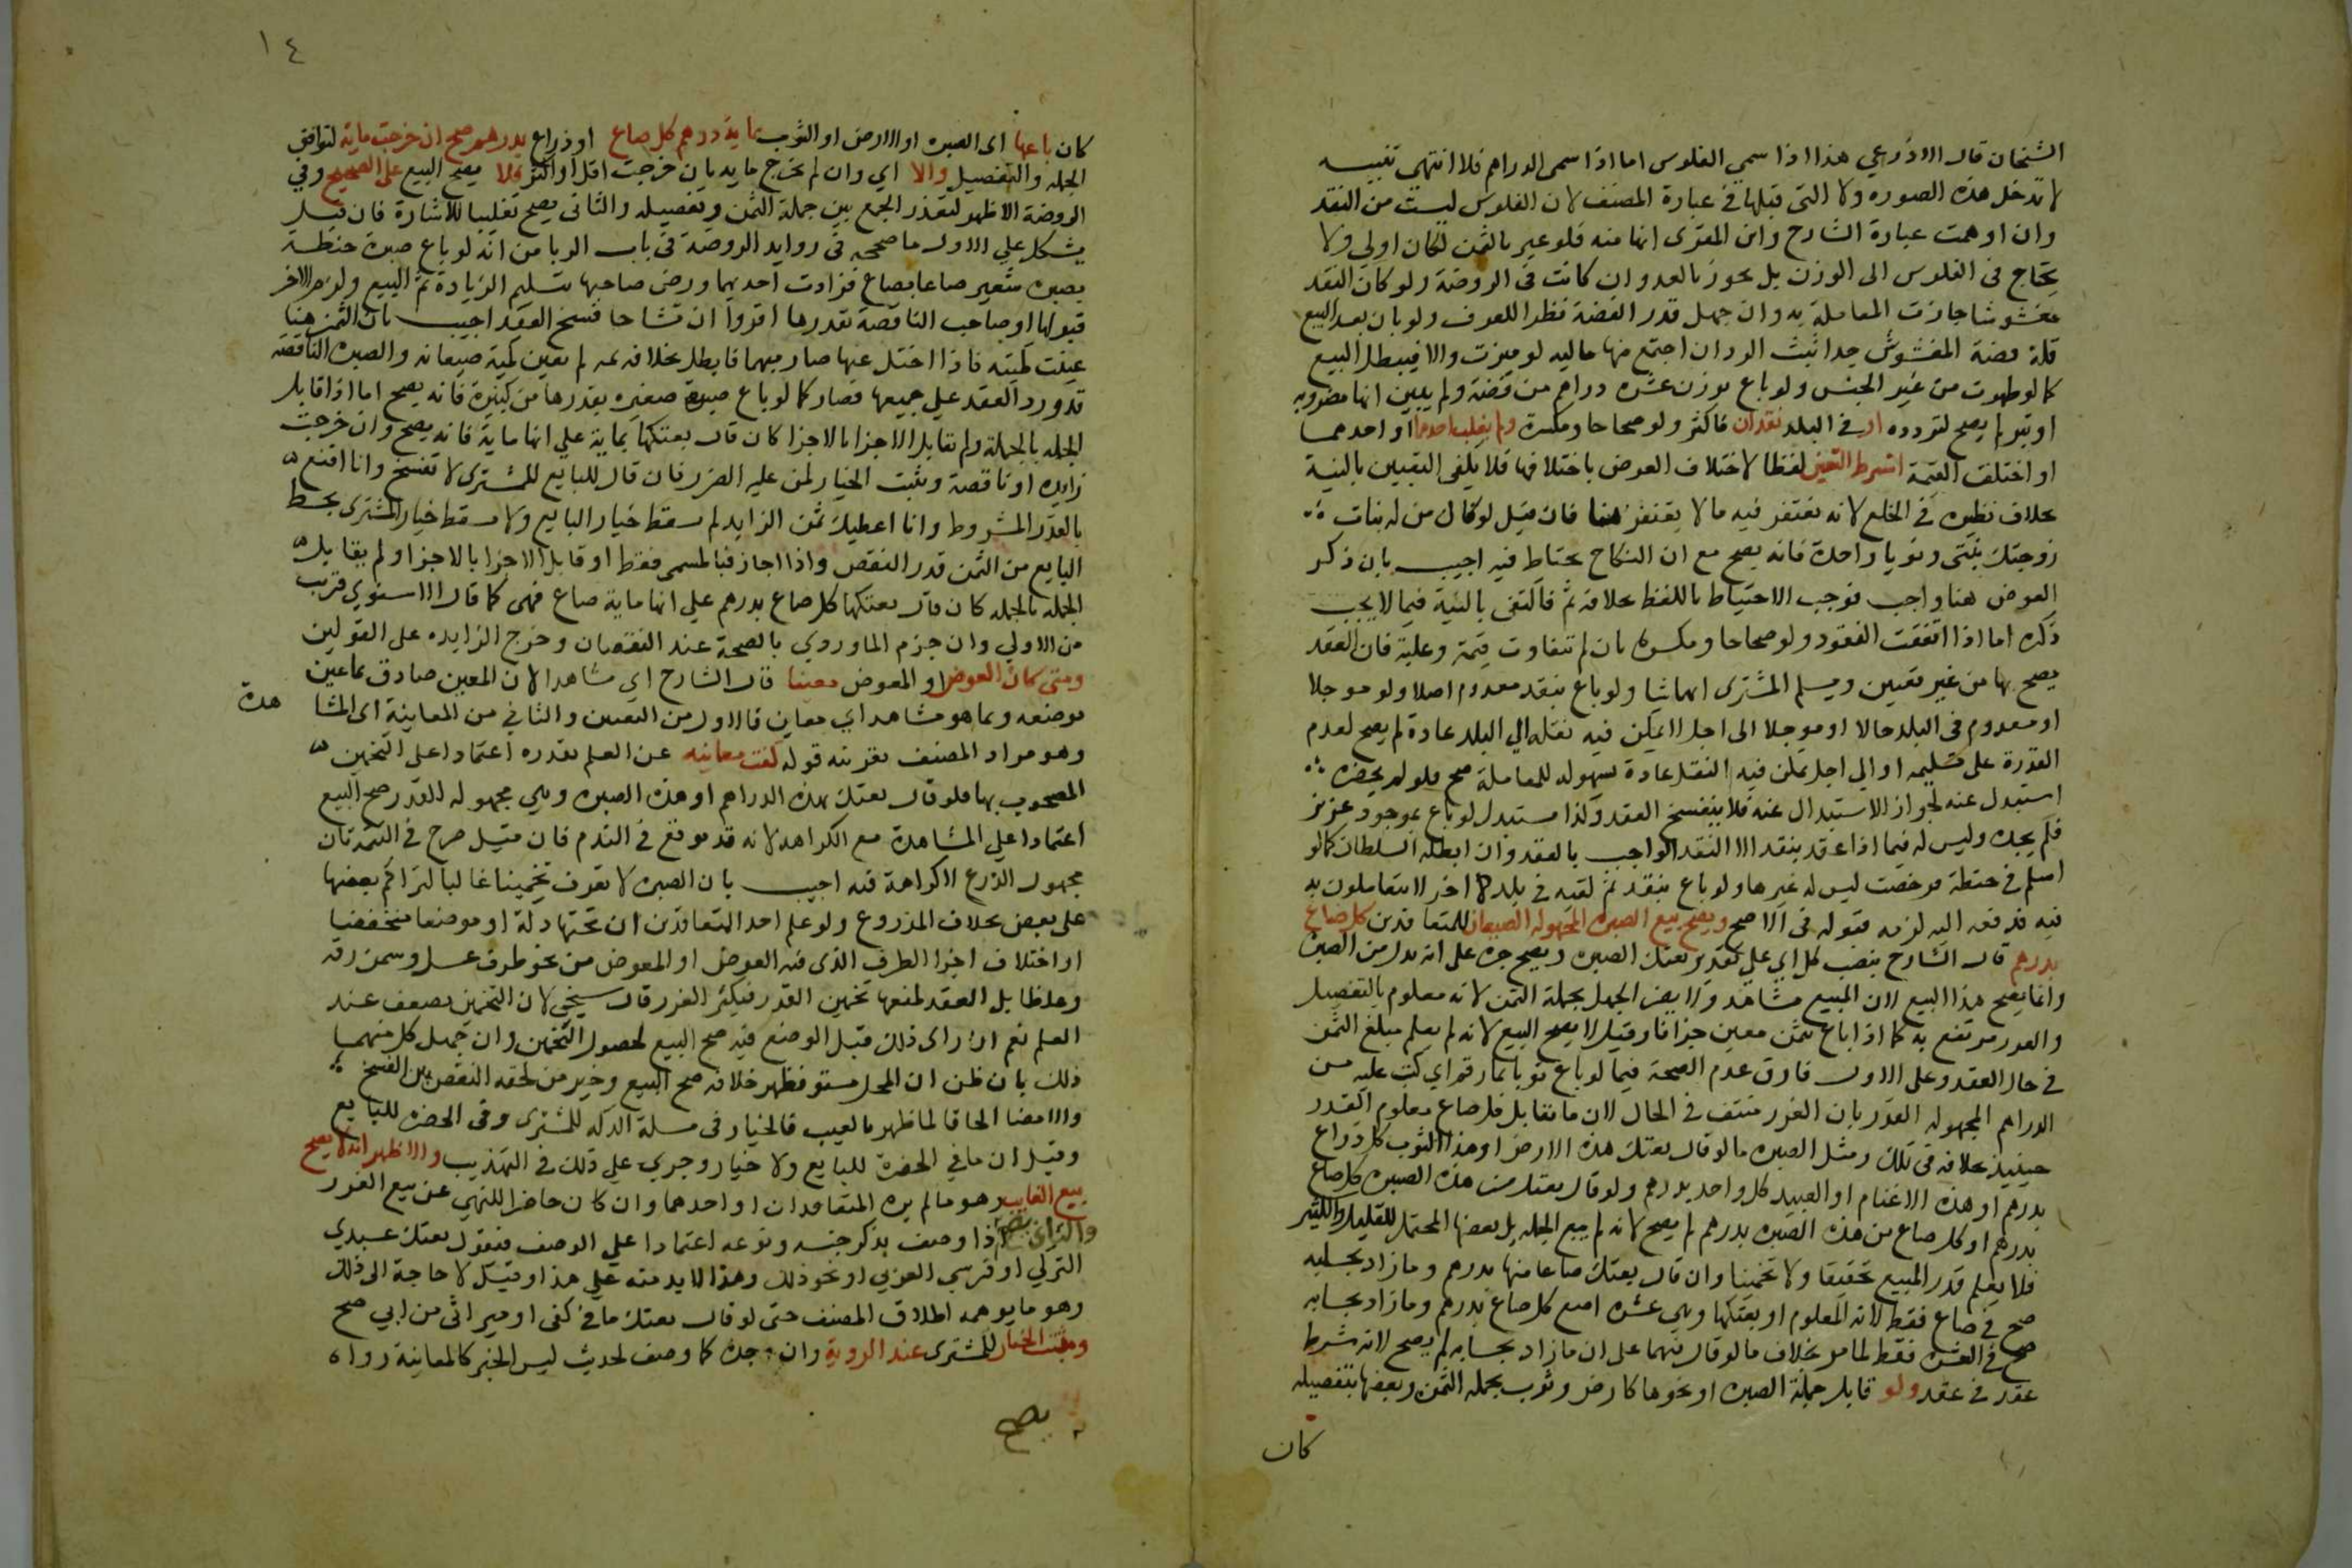 الشيخان قال الاذرعي هذا اذا سمي الفلوس اما اذا سمى الدراهم فلا انتهى تنبيه
لا تدخل هذه الصوره ولا التى قبلها في عبارة المصنف لان الفلوس ليست من النقد
وان اوهمت عبارة الشارح وابن المقرى انها منه فلو عبر بالثمن لكان اولى ولا
يحتاج فى الفلوس الى الوزن بل يجوز بالعد وان كانت فى الروضة ولو كان النقد
مغشوشا جازت المعاملة به وان جهل قدر الفضة نظرا للعرف ولو بان بعد البيع
قلة فضة المغشوش جدا ثبت الرد ان اجتمع منها ماليه لو ميزت والا فيبطل البيع
كما لو ظهرت من غير الجنس ولو باع بوزن عشره دراهم من فضة ولم يبين انها مضروبه
او تبر لم يصح لتردده او في البلد نقدان فاكثر ولو صحاحا ومكسرة ولم يغلب احدهما او احدهما
او اختلفت القيمة اشترط التعيين لفظا لاختلاف العوض باختلافها فلا يكفى التعيين بالنية
بخلاف نظيره في الخلع لانه يغتفر فيه ما لا يغتفر هنا فان قيل لو قال من له بنات
زوجتك بنتى ونويا واحدة فانه يصح مع ان النكاح يحتاط فيه اجيب بان ذكر
العوض هنا واجب فوجب الاحتياط باللفظ بخلافه ثم فاكتفى بالنية فيما لا يجب
ذكره اما اذا اتفقت النقود ولو صحاحا ومكسره بان لم تتفاوت قيمة وغلبة فان العقد
يصح بها من غير تعيين ويسلم المشترى ايها شا ولو باع بنقد معدوم اصلا ولو موجلا
او معدوم في البلد حالا او موجلا الى اجل لا يمكن فيه نقله الي البلد عادة لم يصح لعدم
القدرة على تسليمه او الي اجل يمكن فيه النقل عادة بسهوله للمعاملة صح فلو لم يحضره
استبدل عنه لجواز الاستبدال عنه فلا ينفسخ العقد وكذا يستبدل لو باع بموجود عزيز
فلم يجده وليس له فيما اذا عقد بنقد الا النقد الواجب بالعقد وان ابطله السلطان كما لو
اسلم في حنطة فرخصت ليس له غيرها ولو باع بنقد ثم لقيه في بلد اخر لا يتعاملون به
فيه فدفعه اليه لزمه قبوله في الاصح ويصح بيع الصبره المجهوله الصيعان للمتعاقدين كل صاع
بدرهم قال الشارح بنصب كل اي علي تقدير بعتك الصبره ويصح جره على انه بدل من الصبره
وانما يصح هذا البيع لان المبيع مشاهد ولا يضر الجهل بجملة الثمن لانه معلوم بالتفصيل
والغرر مرتفع به كما اذا باع بثمن معين جزافا وقيل لا يصح البيع لانه لم يعلم مبلغ الثمن
في حال العقد وعلى الاول فارق عدم الصحة فيما لو باع ثوبا بما رقم اي كتب عليه من
الدراهم المجهوله القدر بان الغرر منتف في الحال لان ما يقابل كل صاع معلوم القدر
حينيذ بخلافه في تلك ومثل الصبره ما لو قال بعتك هذه الارض او هذا الثوب كل ذراع
بدرهم او هذه الاغنام او العبيد كل واحد بدرهم ولو قال بعتك من هذه الصبره كل صاع
بدرهم او كل صاع من هذه الصبره بدرهم لم يصح لانه لم يبع الجمله بل بعضها المحتمل للقليل والكثير
فلا يعلم قدر المبيع تحقيقا ولا تخمينا وان قال بعتك صاعا منها بدرهم وما زاد بحسابه
صح في صاع فقط لانه المعلوم او بعتكها وهي عشره اصع كل صاع بدرهم وما زاد بحسابه
صح في العشره فقط لما مر بخلاف ما لو قال فيهما على ان ما زاد بحسابه لم يصح لانه شرط
عقد في عقد ولو قابل جملة الصبره او نحوها كارض وثوب بجمله الثمن وبعضها بتفصيله
كان
١٤
كان باعها اى الصبره او الارض او الثوب بماية درهم كل صاع او ذراع بدرهم صح ان خرجت ماية لتوافق
الجمله والتفصيل والا اي وان لم تخرج مايه بان خرجت اقل او اكثر فلا يصح البيع على الصحيح وفي
الروضة الاظهر لتعذر الجمع بين جملة الثمن وتفصيله والثانى يصح تغليبا للاشارة فان قيل
يشكل علي الاول ما صححه في زوايد الروضة فى باب الربا من انه لو باع صبرة حنطة
بصبره شعير صاعا بصاع فزادت احديهما ورضى صاحبها بتسليم الزيادة تم البيع ولزم الاخر
قبولها او صاحب الناقصة بقدرها اقرا وان تشاحا فسخ العقد اجيب بان الثمن هنا
عينت كميته فاذا اختل عنها صار مبهما فابطل بخلافه ثمه لم يعين كمية صيعانه والصبره الناقصة
قد ورد العقد علي جميعها فصار كما لو باع صبره صغيره بقدرها من كبيرة فانه يصح اما اذا قابل
الجمله بالجملة ولم تقابل الاجزا بالاجزا كان قال بعتكها بماية علي انها ماية فانه يصح وان خرجت
زايده او ناقصة ويثبت الخيار لمن عليه الضرر فان قال للبايع للمشترى لا تفسخ وانا اقنع
بالقدر المشروط وانا اعطيك ثمن الزايد لم يسقط خيار البايع ولا يسقط خيار المشترى بحط
البايع من الثمن قدر النقص واذا اجاز فبالمسمى فقط او قابل الاجزا بالاجزا ولم يقابل
الجمله بالجمله كان قال بعتكها كل صاع بدرهم علي انها ماية صاع فهى كما قال الاسنوي قريب
من الاولي وان جزم الماوردي بالصحة عند النقصان وخرج الزايده على القولين
ومتى كان العوض او المعوض معينا قال الشارح اي مشاهدا لان المعين صادق بما عين
بوصفه وبما هو مشاهد اي معاين فالاول من التعيين والثانى من المعاينة اى المشا هدة
وهو مراد المصنف بقرينة قوله كفت معاينته عن العلم بقدره اعتمادا على التخمين
المصحوب بها فلو قال بعتك بهذه الدراهم او هذه الصبره وهي مجهوله القدر صح البيع
اعتمادا علي المشاهدة مع الكراهه لانه قد يوقع في الندم فان قيل صرح في التتمة بان
مجهول الذرع لا كراهة فيه اجيب بان الصبره لا تعرف تخمينا غالبا لتراكم بعضها
على بعض بخلاف المذروع ولو علم احد المتعاقدين ان تحتها دكة او موضعا منخفضا
او اختلاف اجزا الظرف الذى فيه العوض او المعوض من نحو ظرف عسل وسمن رقه
وغلظا بطل العقد لمنعها تخمين القدر فيكثر الغرر قال شيخي لان التخمين يضعف عند
العلم نعم ان راى ذلك قبل الوضع فيه صح البيع لحصول التخمين وان جهل كل منهما
ذلك بان ظن ان المحل مستو فظهر خلافه صح البيع وخير من لحقه النقص بين الفسخ
والامضا الحاقا لما ظهر بالعيب فالخيار في مسلة الدكه للمشترى وفى الحفره للبايع
وقيل ان ما في الحفرة للبايع ولا خيار وجرى علي ذلك في التهذيب والاظهر انه لا يصح
بيع الغايب وهو ما لم يره المتعاقدان او احدهما وان كان حاضرا للنهي عن بيع الغرر
والثانى يصح اذا وصف بذكر جنسه ونوعه اعتمادا علي الوصف فيقول بعتك عبدي
التركي او فرسي العربي او نحو ذلك وهذا لا بد منه علي هذا وقيل لا حاجة الى ذلك
وهو ما يوهمه اطلاق المصنف حتى لو قال بعتك ما في كفى او ميراثى من ابي صح
ويثبت الخيار للمشترى عند الروية وان وجده كما وصف لحديث ليس الخبر كالمعاينة رواه
يصح